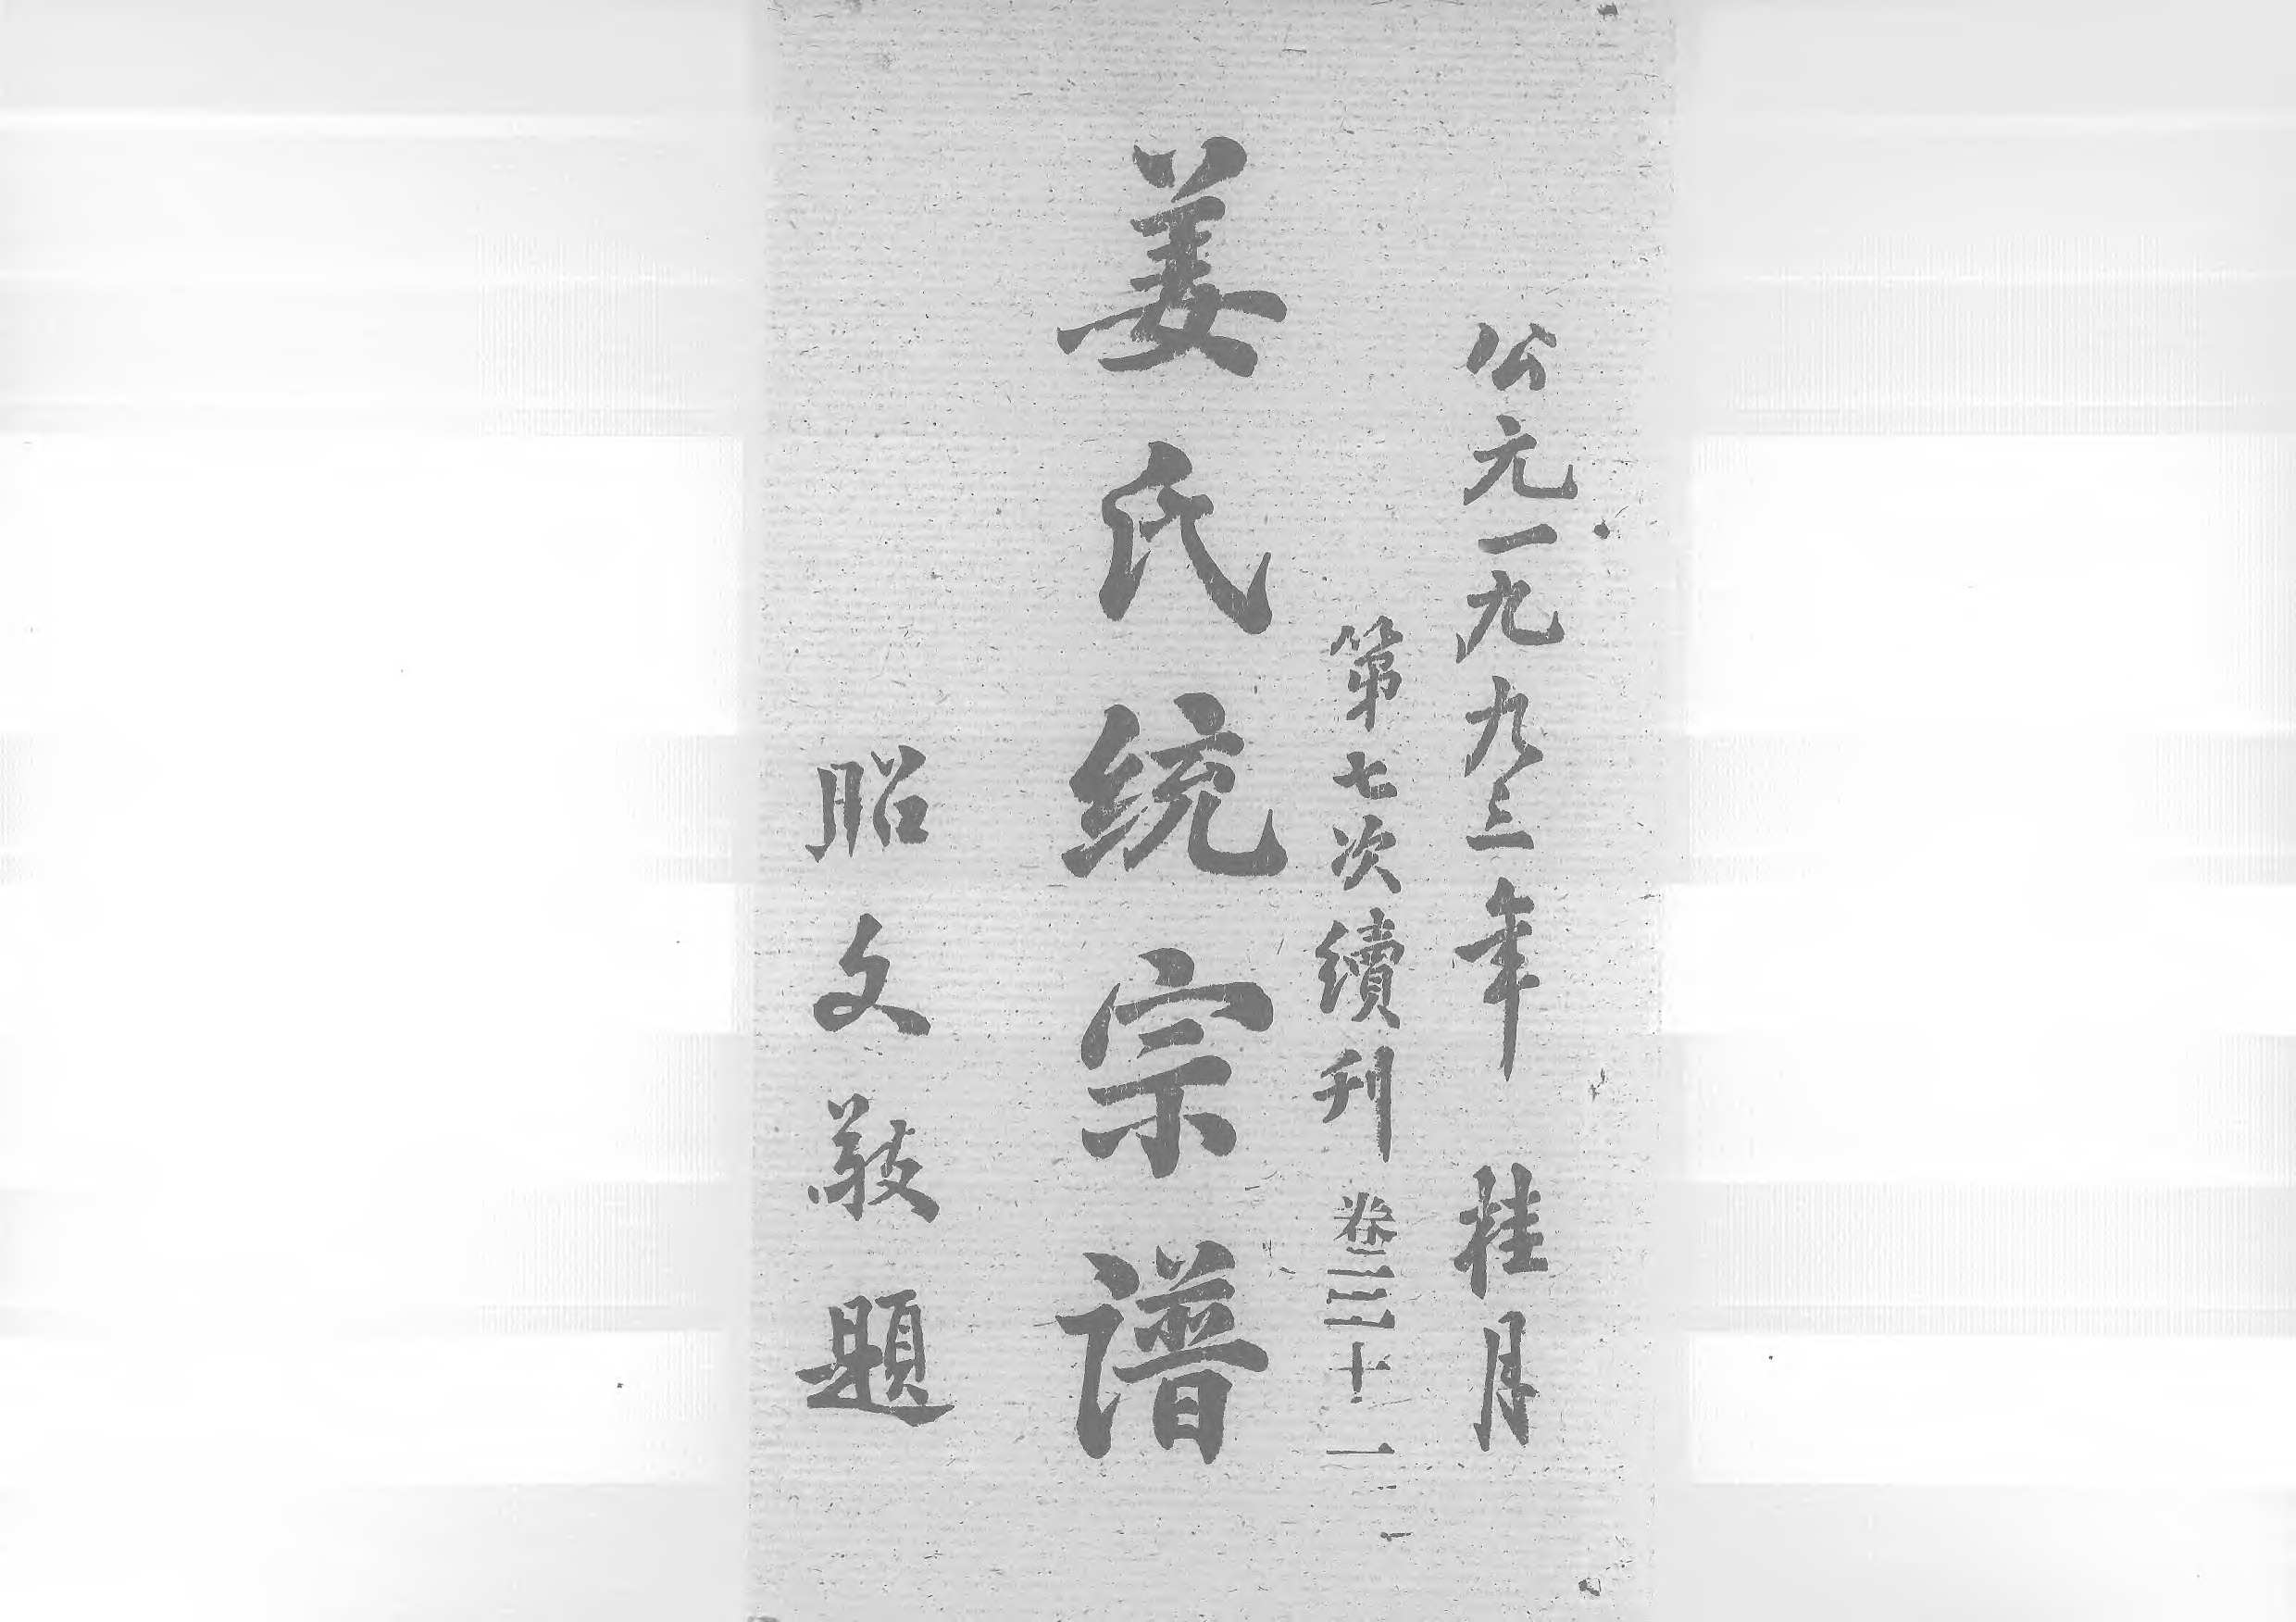 公元一九九三年 桂月
第七次續刊 卷 十一
姜氏统宗谱
昭文敬題